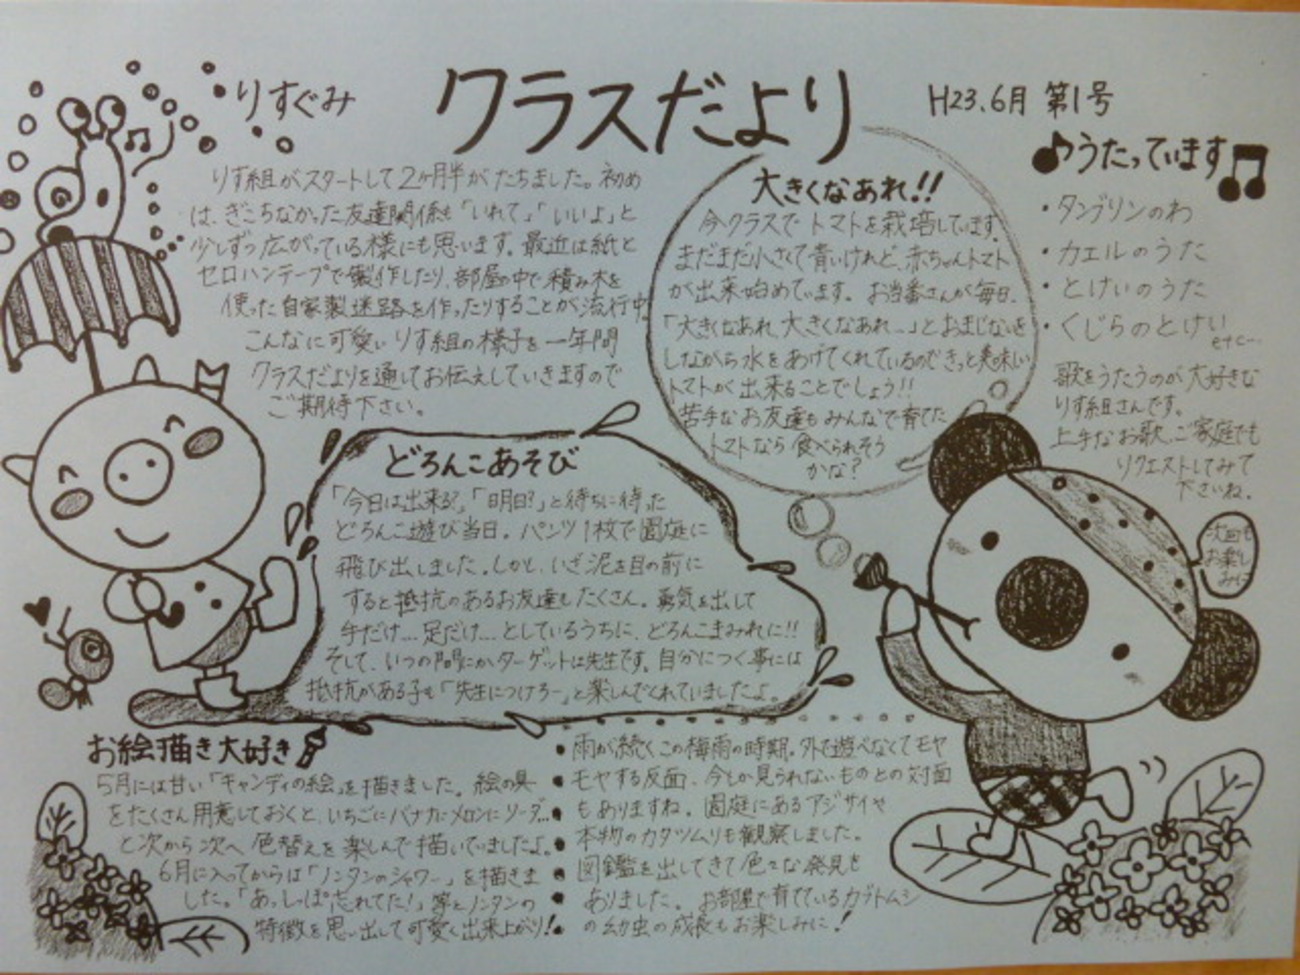 りすぐみ
クラスだより
H23.6月 第1号
りす組がスタートして2ヶ月半がたちました。初め
は、ぎこちなかった友達関係も「いれて」「いいよ」と
少しずつ広がっている様にも思います。最近は紙と
セロハンテープで製作したり、部屋の中で積み木を
使った自家製迷路を作ったりすることが流行中
こんなに可愛いりす組の様子を一年間
クラスだよりを通してお伝えしていきますので
ご期待下さい。
大きくなあれ!!
今クラスでトマトを栽培しています。
まだまだ小さくて青いけれど、赤ちゃんトマト
が出来始めています。お当番さんが毎日、
「大きくなあれ、大きくなあれ…」とおまじないを
しながら水をあげてくれているのできっと美味しい
トマトが出来ることでしょう!!
苦手なお友達もみんなで育てた
トマトなら食べられそう
かな?
♪うたっています♫
・タンブリンのわ
・カエルのうた
・とけいのうた
・くじらのとけい
etc…
歌をうたうのが大好きな
りす組さんです。
上手なお歌、ご家庭でも
リクエストしてみて
下さいね。
次回も
お楽し
みに
どろんこあそび
「今日は出来る?」「明日?」と待ちに待った
どろんこ遊び当日。パンツ1枚で園庭に
飛び出しました。しかし、いざ泥を目の前に
すると抵抗のあるお友達もたくさん。勇気を出して
手だけ…足だけ…としているうちに、どろんこまみれに!!
そして、いつの間にかターゲットは先生です。自分につく事には
抵抗がある子も「先生につけろー」と楽しんでくれていましたよ。
お絵描き大好き
5月には甘い「キャンディの絵」を描きました。絵の具
をたくさん用意しておくと、いちごにバナナにメロンにソーダ…
と次から次へ色替えを楽しんで描いていましたよ。
6月に入ってからは「ノンタンのシャワー」を描きま
した。「あっ、しっぽ忘れてた!」等とノンタンの
特徴を思い出して可愛く出来上がり!
雨が続くこの梅雨の時期。外で遊べなくてモヤ
モヤする反面、今しか見られないものとの対面
もありますね。園庭にあるアジサイや
本物のカタツムリも観察しました。
図鑑を出してきて色々な発見も
ありました。お部屋で育てているカブトムシ
の幼虫の成長もお楽しみに!